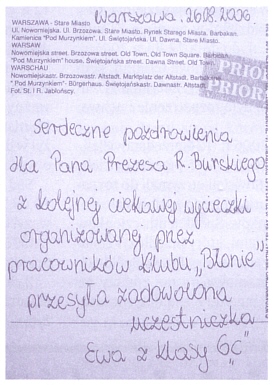 Warszawa, 26.08.2006.
WARSZAWA - Stare Miasto
Ul. Nowomiejska. Ul. Brzozowa, Stare Miasto, Rynek Starego Miasta, Barbakan,
Kamienica "Pod Murzynkiem". Ul. Świętojańska. Ul. Dawna, Stare Miasto.
WARSAW
Nowomiejska street, Brzozowa street, Old Town, Old Town Square. Barbican,
"Pod Murzynkiem" house, Świętojańska street, Dawna street, Old Town.
WARSCHAU
Nowomiejskastr. Brzozowastr. Altstadt, Marktplatz der Altstadt, Barbakane,
"Pod Murzynkiem" - Bürgerhaus. Świętojańskastr. Dawnastr. Altstadt
Fot. St. i R. Jabłońscy
PRIOR
PRIORI
Serdeczne pozdrowienia
dla Pana Prezesa R. Burskiego
z kolejnej ciekawej wycieczki
organizowanej przez
pracowników Klubu „Błonie"
przesyła zadowolona
uczestniczka
Ewa z klasy 6c"